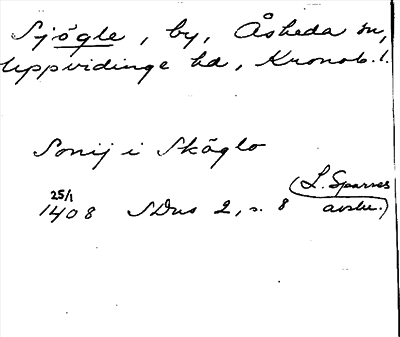 Sjögle, by, Åsheda sn,
Uppvidinge hd, Kronob. l.
Sonij i Skōglo
(L. Sparres
25/1 1408 SDns 2, s. 8 avskr.)